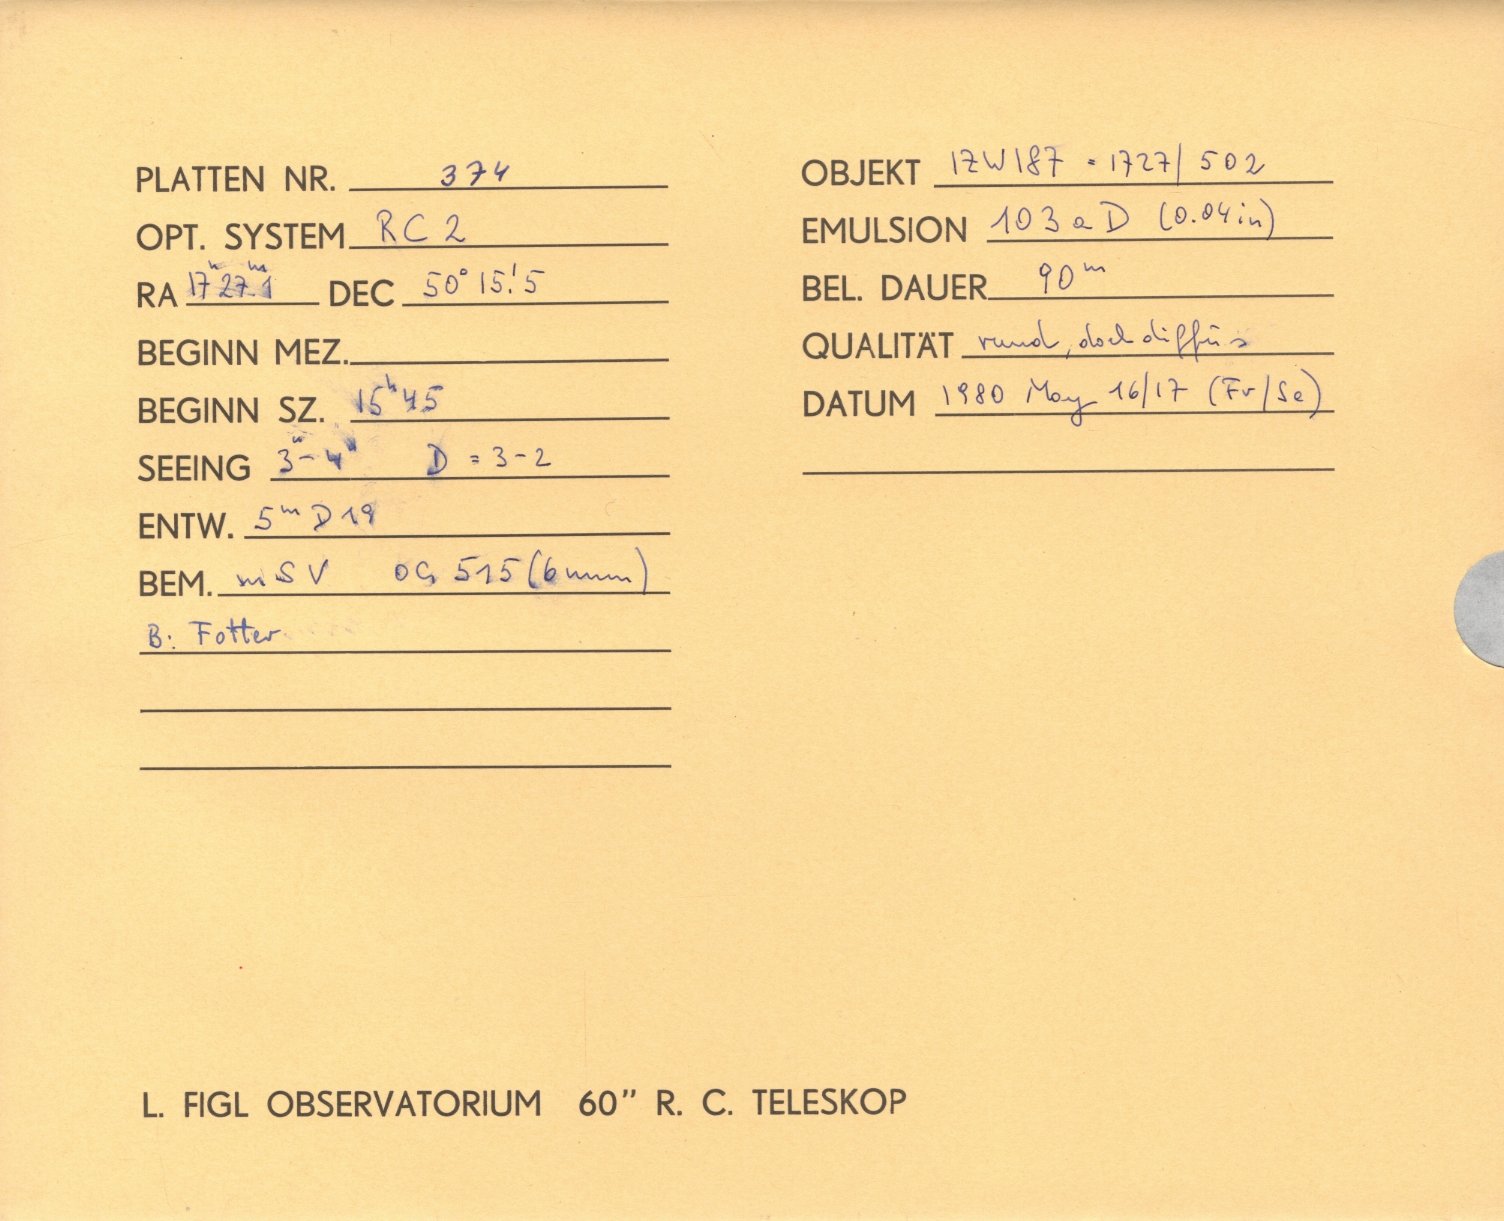 PLATTEN NR. 374
OPT. SYSTEM RC 2
RA 17h 27m 1 DEC 50° 15.'5
BEGINN MEZ.
BEGINN SZ. 15h 45
SEEING 3"-4" D = 3-2
ENTW. 5m D19
BEM. mSV OG 515 (6mm)
B: Fotter
OBJEKT IZW187 = 1727/502
EMULSION 103aD (0.04in)
BEL. DAUER 90m
QUALITÄT rund, doch diffus
DATUM 1980 May 16/17 (Fr/Sa)
L. FIGL OBSERVATORIUM 60" R. C. TELESKOP